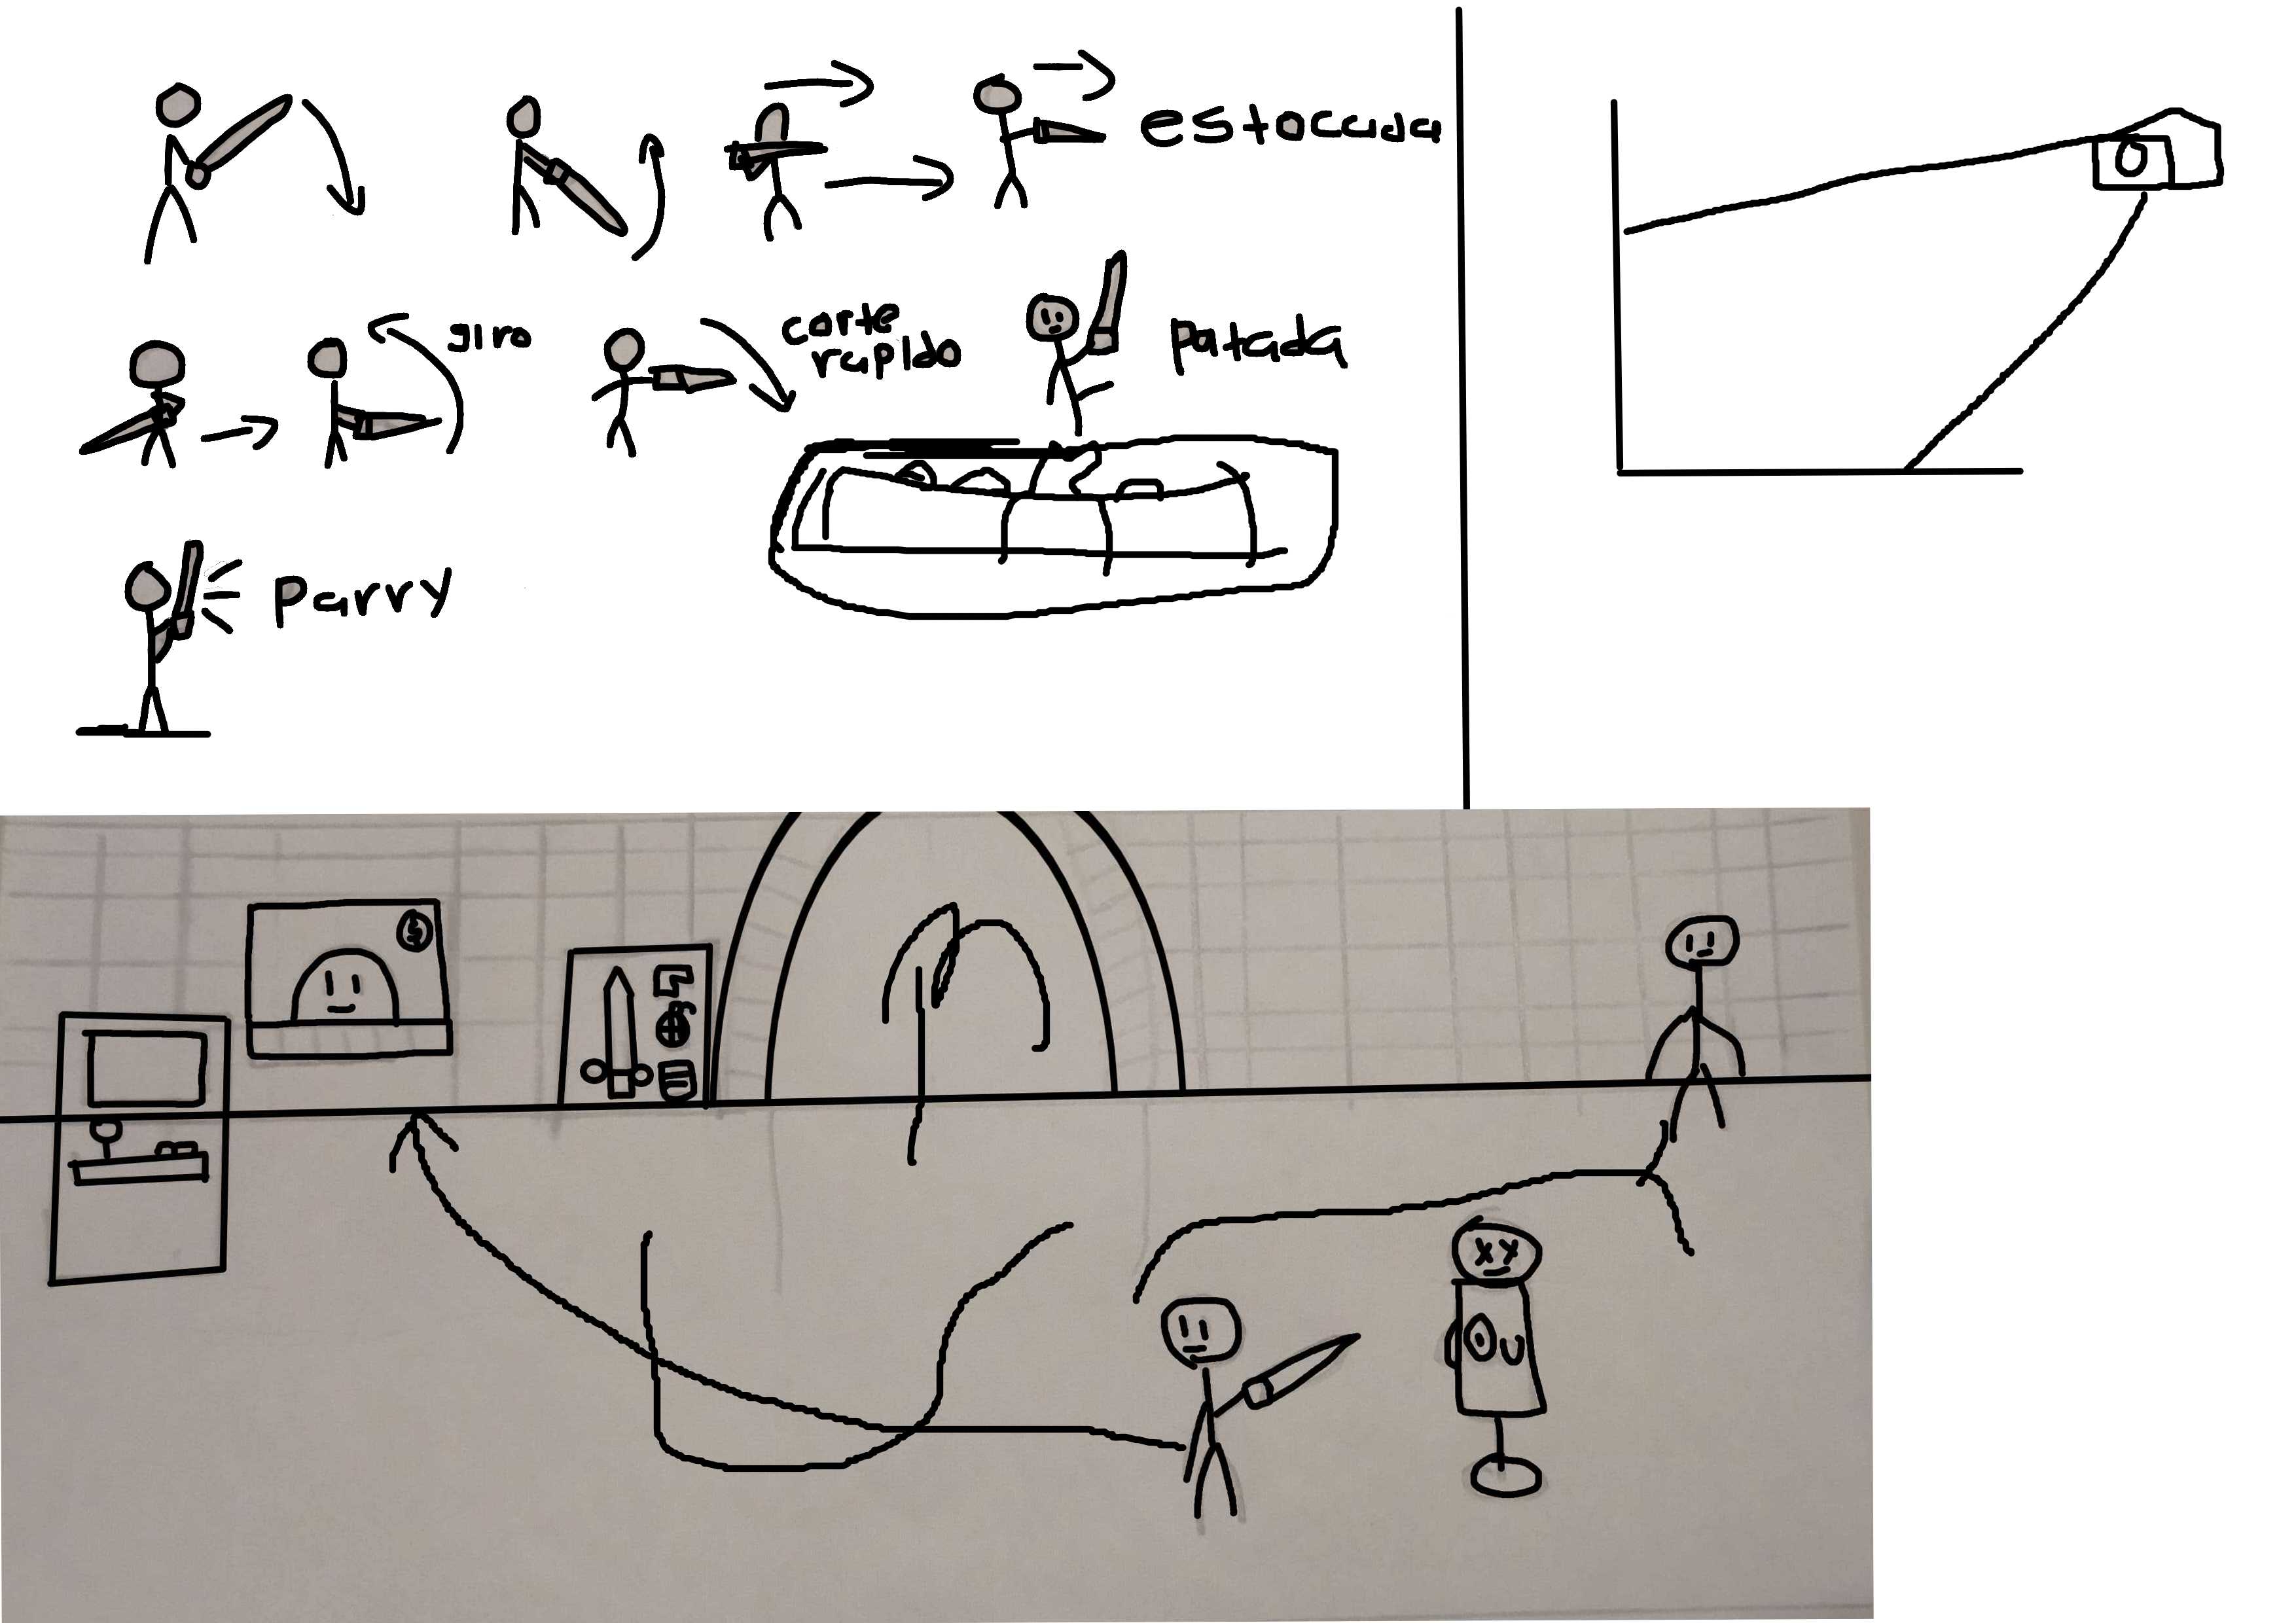 estoccada
giro
corte
rapido
patada
parry